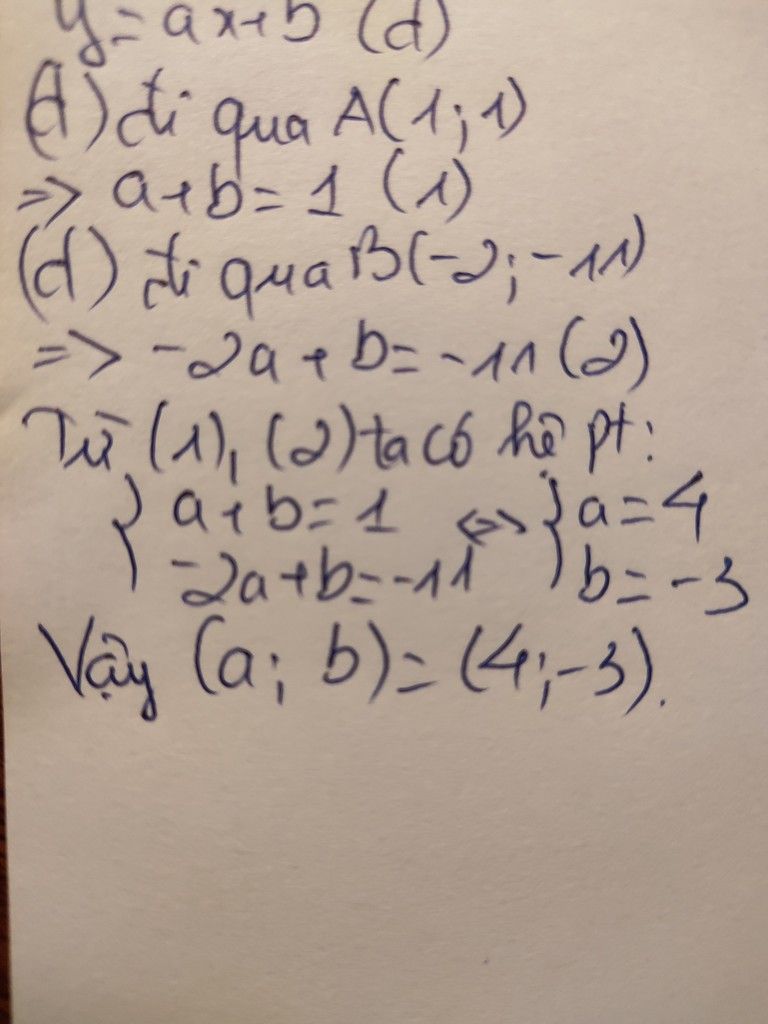 y = ax+b (d)
(d) đi qua A(1; 1)
=> a+b = 1 (1)
(d) đi qua B(-2; -11)
=> -2a + b = -11 (2)
Từ (1), (2) ta có hệ pt:
{ a+b = 1 <=> { a = 4
-2a+b = -11 b = -3
Vậy (a; b) = (4; -3).